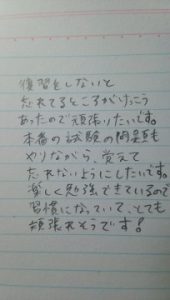 復習をしないと
忘れてるところがけっこう
あったので頑張りたいです。
本番の試験の問題も
やりながら、覚えて
忘れないようにしたいです。
楽しく勉強できているので
習慣になっていて、とても
頑張れそうです!